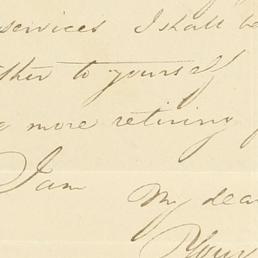 services I shall be
ther to yourself
more retiring
I am My dear
Your